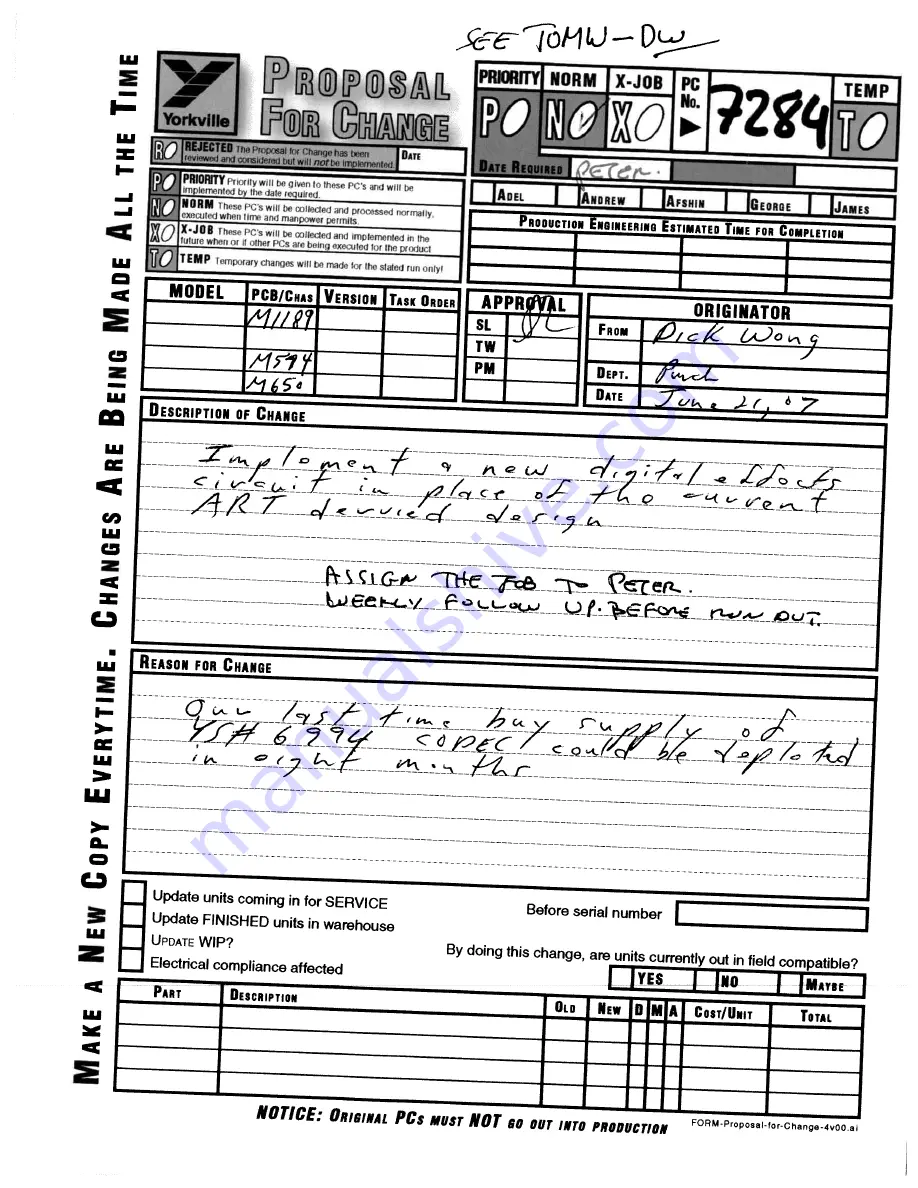 SEE TOMW-DW
Yorkville
PROPOSAL
FOR CHANGE
PRIORITY NORM X-JOB PC No. 7284 TEMP
P N X T
R REJECTED The Proposal for Change has been
reviewed and considered but will not be implemented. DATE
DATE REQUIRED PETER.
P PRIORITY Priority will be given to these PC's and will be
implemented by the date required.
N NORM These PC's will be collected and processed normally,
executed when time and manpower permits.
X X-JOB These PC's will be collected and implemented in the
future when or if other PCs are being executed for the product
T TEMP Temporary changes will be made for the stated run only!
ADEL ANDREW AFSHIN GEORGE JAMES
PRODUCTION ENGINEERING ESTIMATED TIME FOR COMPLETION
MODEL PCB/CHAS VERSION TASK ORDER
M1189
M594
M650
APPROVAL
SL
TW
PM
ORIGINATOR
FROM Dick Wong
DEPT. Purch
DATE June 21, 07
DESCRIPTION OF CHANGE
Implement a new digital effects
circuit in place of the current
ART dervied design
ASSIGN THE JOB TO PETER.
WEEKLY FOLLOW UP. BEFORE RUN OUT.
REASON FOR CHANGE
Our last time buy supply of
YS# 6994 CODEC could be depleted
in eight months
Update units coming in for SERVICE
Before serial number
Update FINISHED units in warehouse
UPDATE WIP?
By doing this change, are units currently out in field compatible?
Electrical compliance affected
YES NO MAYBE
PART DESCRIPTION OLD NEW D M A COST/UNIT TOTAL
NOTICE: ORIGINAL PCS MUST NOT GO OUT INTO PRODUCTION
FORM-Proposal-for-Change-4v00.ai
MAKE A NEW COPY EVERYTIME. CHANGES ARE BEING MADE ALL THE TIME
manualshive.com